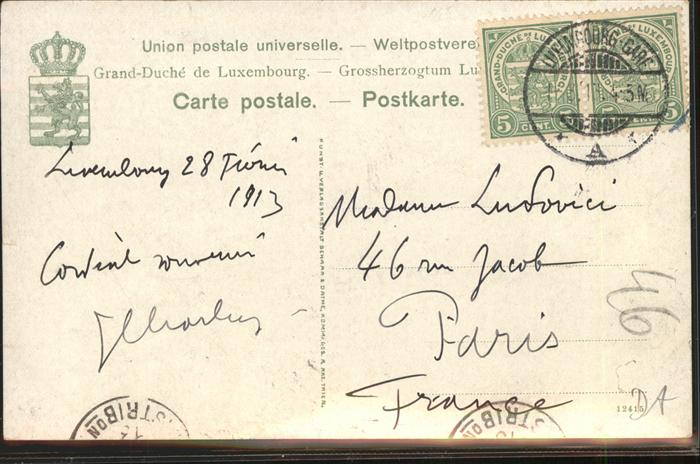 Union postale universelle. — Weltpostvere
Grand-Duché de Luxembourg. — Grossherzogtum Lu
Carte postale. — Postkarte.
GRAND-DUCHÉ DE LUXEMBOURG
5 CENT
5
LUXEMBOURG-GARE
4-5 N
A
Luxembourg 28 Février
1913
Cordial souvenir
Madame Ludovici
46 rue Jacob
Paris
France
46
DA
12415
STRIBON
STRIBON